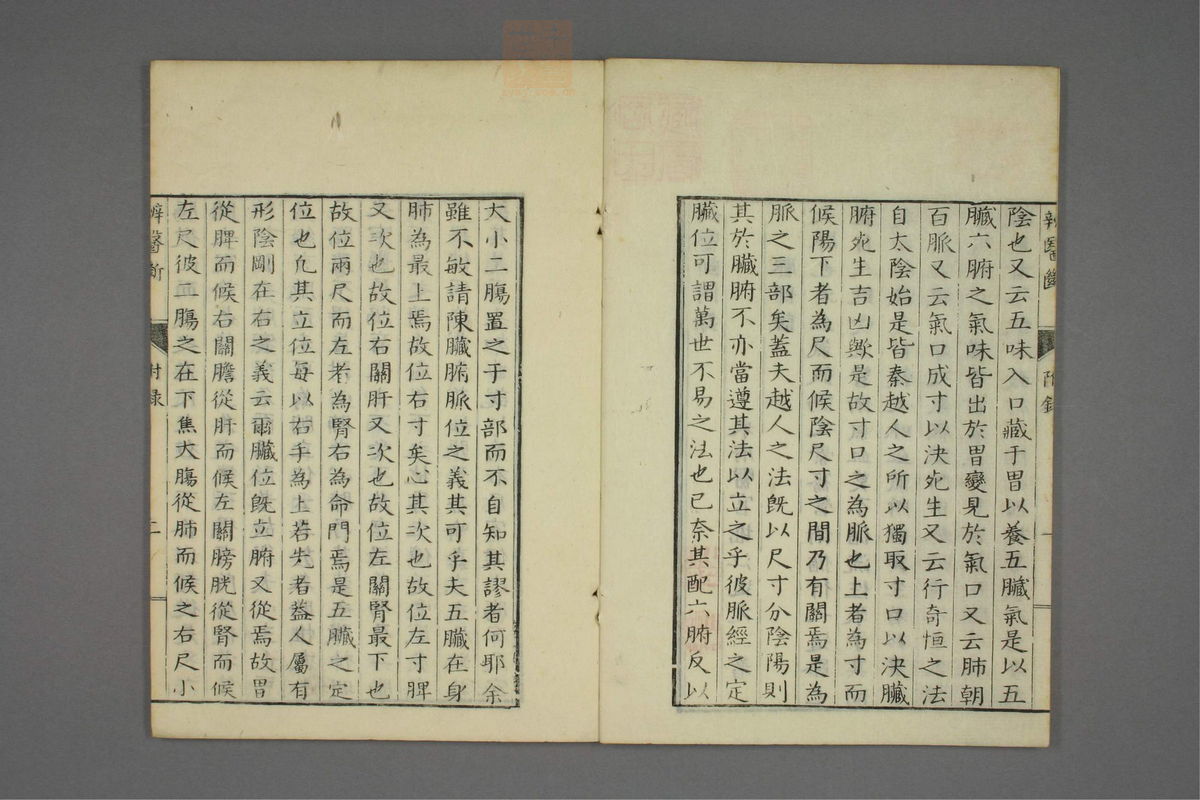 陰也又云五味入口藏于胃以養五臟氣是以五
臟六腑之氣味皆出於胃變見於氣口又云肺朝
百脈又云氣口成寸以決死生又云行奇恒之法
自太陰始是皆秦越人之所以獨取寸口以決臟
腑死生吉凶歟是故寸口之為脈也上者為寸而
候陽下者為尺而候陰尺寸之間乃有關焉是為
脈之三部矣蓋夫越人之法既以尺寸分陰陽則
其於臟腑不亦當遵其法以立之乎彼脈經之定
臟位可謂萬世不易之法也已奈其配六腑反以
大小二腸置之于寸部而不自知其謬者何耶余
雖不敏請陳臟腑脈位之義其可乎夫五臟在身
肺為最上焉故位右寸矣心其次也故位左寸脾
又次也故位右關肝又次也故位左關腎最下也
故位兩尺而左者為腎右為命門焉是五臟之定
位也凡其立位每以右手為上若先者蓋人屬有
形陰剛在右之義云爾臟位既立腑又從焉故胃
從脾而候右關膽從肝而候左關膀胱從腎而候
左尺彼二腸之在下焦大腸從肺而候之右尺小
辨醫斷
附錄
二